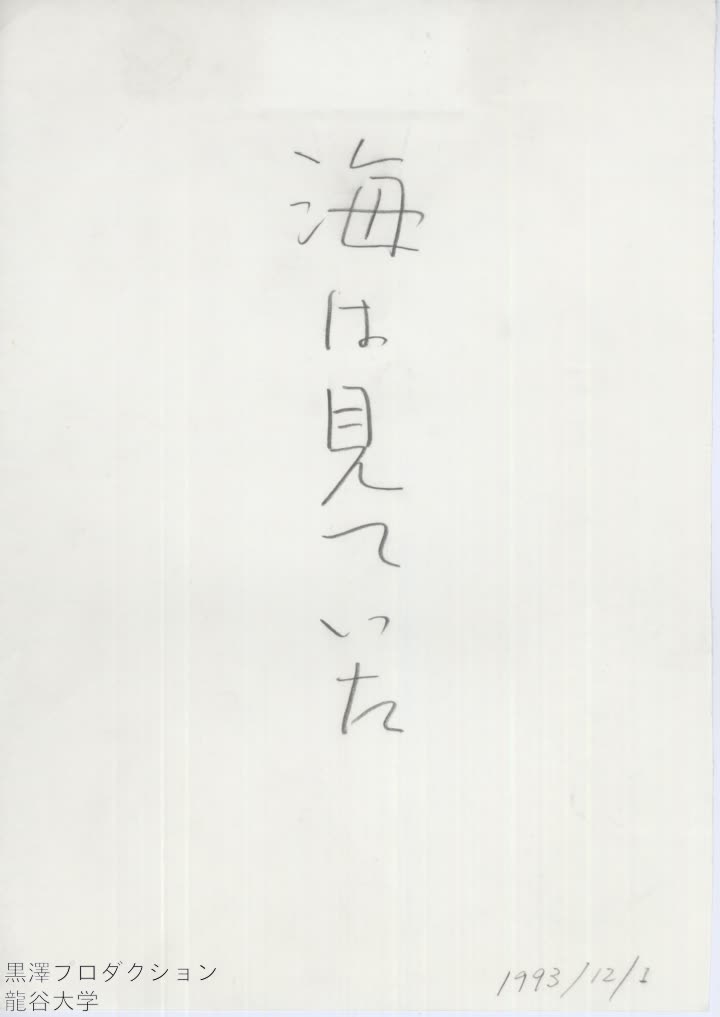 海は見ていた
1993/12/1
黒澤フロダクション
龍谷大学